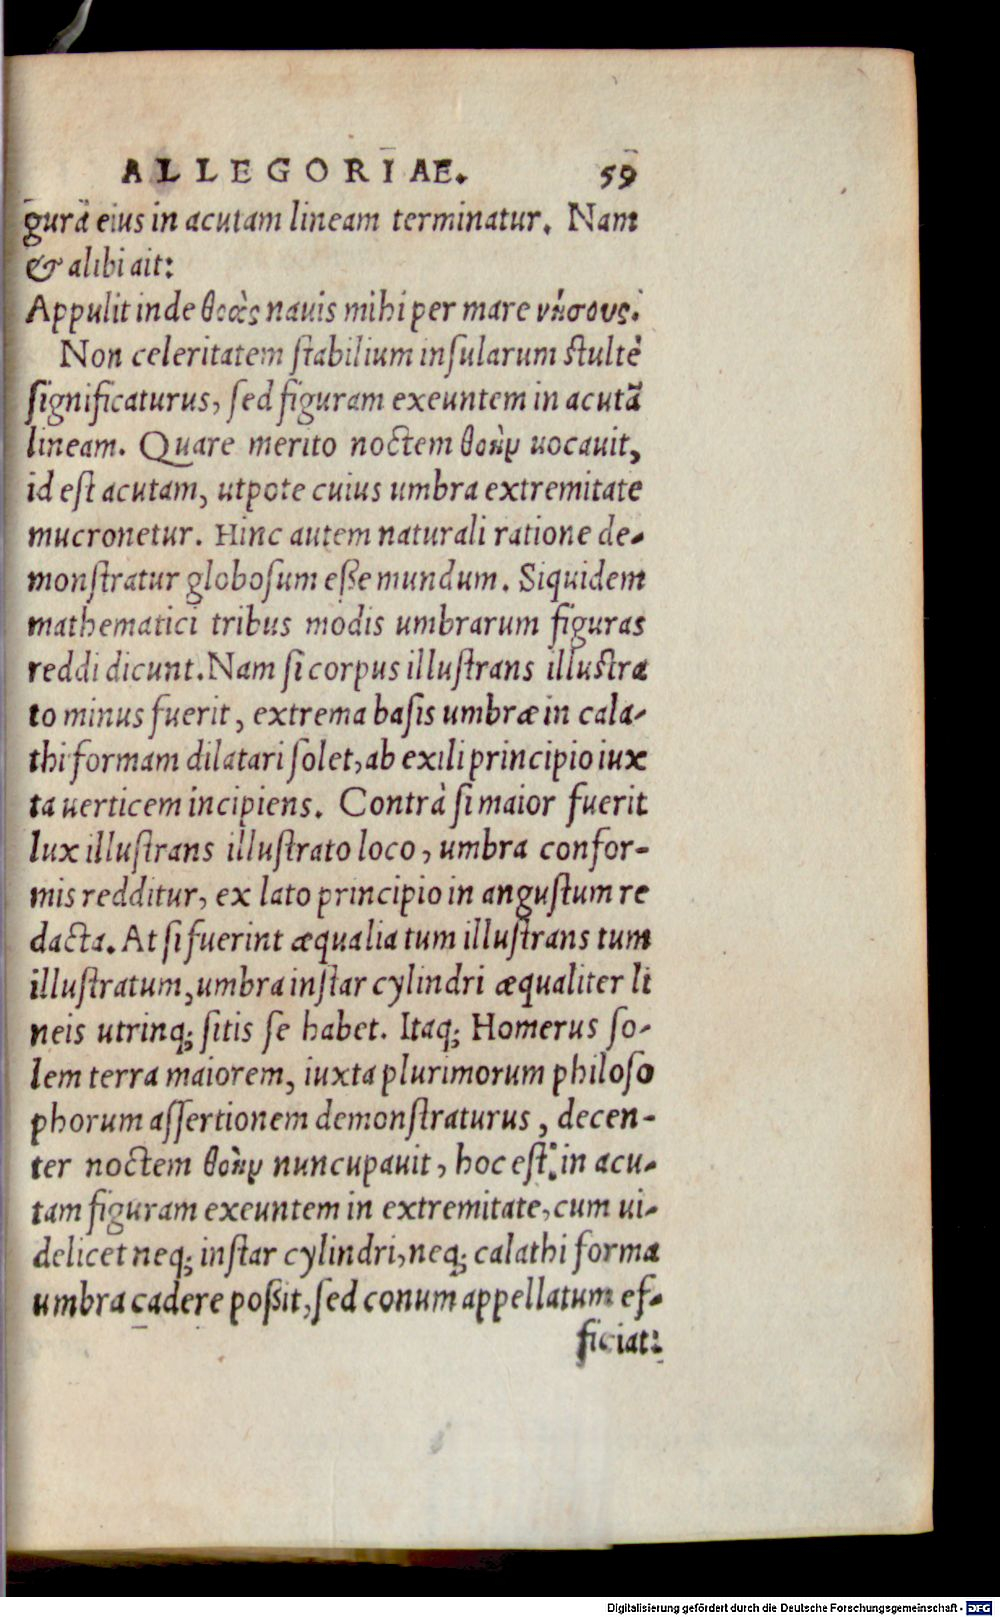 ALLEGORIAE. 59
gurā eius in acutam lineam terminatur. Nam
& alibi ait:
Appulit inde θοὰς nauis mihi per mare νήσους.
Non celeritatem stabilium insularum stultè
significaturus, sed figuram exeuntem in acutā
lineam. Quare merito noctem θοὴν uocauit,
id est acutam, utpote cuius umbra extremitate
mucronetur. Hinc autem naturali ratione de-
monstratur globosum eße mundum. Siquidem
mathematici tribus modis umbrarum figuras
reddi dicunt. Nam si corpus illustrans illustra
to minus fuerit, extrema basis umbræ in cala-
thi formam dilatari solet, ab exili principio iux
ta uerticem incipiens. Contrà si maior fuerit
lux illustrans illustrato loco, umbra confor-
mis redditur, ex lato principio in angustum re
dacta. At si fuerint æqualia tum illustrans tum
illustratum, umbra instar cylindri æqualiter li
neis utrinq; sitis se habet. Itaq; Homerus so-
lem terra maiorem, iuxta plurimorum philoso
phorum assertionem demonstraturus, decen-
ter noctem θοὴν nuncupauit, hoc est: in acu-
tam figuram exeuntem in extremitate, cum ui-
delicet neq; instar cylindri, neq; calathi forma
umbra cadere poßit, sed conum appellatum ef-
ficiat:
Digitalisierung gefördert durch die Deutsche Forschungsgemeinschaft - DFG